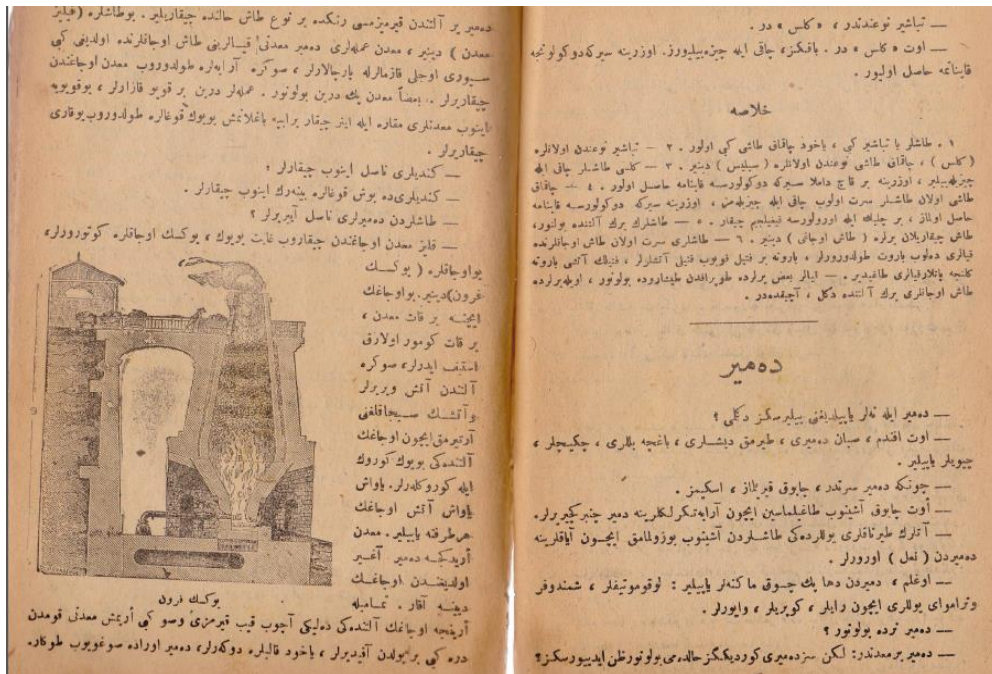 — تباشیر نوعندندر ، « كلس » در .
— اوت « كلس » در . باقكز ، چاقی ايله چيزه‌بيلييورز. اوزرينه سيركه دوكولونجه
قاينامه حاصل اولييور .
خلاصه
١ . طاشلر يا تباشير كبی ، ياخود چاقماق طاشی كبی اولور . ٢ — تباشير نوعندن اولانلره
( كلس ) ، چاقماق طاشی نوعندن اولانلره ( سيليس ) دينير . ٣ — كلسی طاشلر چاقی ايله
چيزيله‌بيلير ، اوزرينه بر قاچ داملا سيركه دوكولورسه قاينامه حاصل اولور . ٤ — چاقماق
طاشی اولان طاشلر سرت اولوب چاقی ايله چيزيله‌مز ، اوزرينه سيركه دوكولورسه قاينامه
حاصل اولماز ، بر چليك ايله اورولورسه قيغيلجم چيقار . ٥ — طاشلرك يرك آلتنده بولنور،
طاش چيقاريلان يرلره ( طاش اوجاغی ) دينير . ٦ — طاشلری سرت اولان طاش اوجاقلرنده
قيالری ده‌لوب باروت طولدورورلر ، باروته بر فتيل قويوب فتيلی آتشلرلر ، فتيلك آتشی باروته
كلنجه پاتلار قيالری طاغيدير . — قيالر بعض يرلرده طوپراقدن طيشاروده بولونور ، اويله يرلرده
طاش اوجاقلری يرك آلتنده دكل ، آچيقده‌در .
ده‌مير
— ده‌مير ايله نه‌لر ياپيلديغنی بيليرسكز دكلمی ؟
— اوت افندم ، صبان ده‌ميری ، طيرمق ديشلری ، باغچه بللری ، چكيچلر ،
چيويلر ياپيلير .
— چونكه ده‌مير سرتدر ، چابوق قيريلماز ، اسكيمز .
— أوت چابوق آشينوب طاغيلماسين ايچون آرابه تكرلكلرينه دمير چنبر كچيررلر.
— آتلرك طيرناقلری يوللرده‌كی طاشلردن آشينوب بوزولمامق ايچون آياقلرينه
ده‌ميردن ( نعل ) اورورلر .
— اوغلم ، دميردن دها پك چوق ماكنه‌لر ياپيلير : لوقوموتيفلر ، شمندوفر
وتراموای يوللری ايچون رايلر ، كوپريلر ، واپورلر .
— ده‌مير نرده بولونور ؟
— ده‌مير بر معدندر: لكن سز ده‌ميری كورديككز حالده‌می بولونور ظن ايدييورسكز؟
ده‌مير ير آلتندن قيرمزيمسی رنكده بر نوع طاش حالنده چيقاريلير . بوطاشلره (فيليز
معدن ) دينير ، معدن عمله‌لری ده‌مير معدنی قيالرينی طاش اوجاقلرنده اولديغی كبی
سيوری اوجلی قازمالرله پارچالارلر ، سوكره آرابه‌لره طولدوروب معدن اوجاغندن
چيقاريرلر . بعضاً معدن پك درين بولونور . عمله‌لر درين بر قويو قازارلر ، بوقويويه
اينوب معدنلری مقاره ايله اينر چيقار برايپه باغلانمش بويوك قوغالره طولدوروب يوقاری
چيقاريرلر .
— كنديلری ناسل اينوب چيقارلر ؟
— كنديلری‌ده بوش قوغالره بينه‌رك اينوب چيقارلر .
— طاشلردن ده‌ميرلری ناسل آييريرلر ؟
— فليز معدن اوجاغندن چيقاروب غايت بويوك ، يوكسك اوجاقلره كوتورورلر،
بواوجاقلره ( يوكسك
فرون) دينير. بواوجاغك
ايچنه بر قات معدن ،
بر قات كومور اولارق
استيف ايدرلر، سوكره
آلتندن آتش ويريرلر
وآتشك سيجاقلغنی
آرتيرمق ايچون اوجاغك
آلتنده‌كی بويوك كوروك
ايله كوروكلرلر. ياواش
ياواش آتش اوجاغك
هر طرفنه ياييلير. معدن
أريدكجه ده‌مير آغير
اولديغندن اوجاغك
ديبنه آقار . تماميله
يوكسك فرون
أرينجه اوجاغك آلتنده‌كی ده‌ليكی آچوب قيپ قيرمزی وصو كبی أريمش معدنی قومدن
دره كبی بر يولدن آقيديرلر ، ياخود قالبلره دوكرلر، ده‌مير اوراده صوغويوب طوكار.